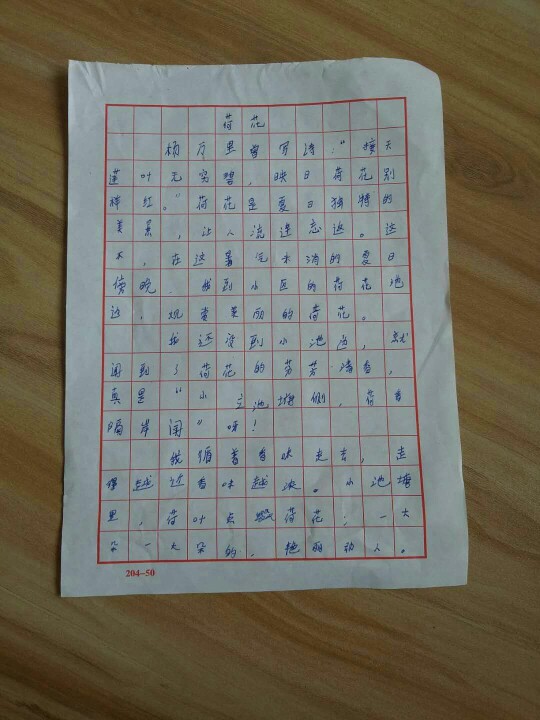 荷花
杨万里曾写诗:"接天
莲叶无穷碧,映日荷花别
样红。"荷花是夏日独特的
美景,让人流连忘返。这
不,在这暑气未消的夏日
傍晚,我到小区的荷花池
边,观赏美丽的荷花。
我还没到小池边,就
闻到了荷花的芬芳清香,
真是"小立池塘侧,荷香
隔岸闻"呀!
我循着香味走去,走
得越近香味越浓。小池塘
里,荷叶点缀荷花;一大
朵一大朵的,艳丽动人。
204-50